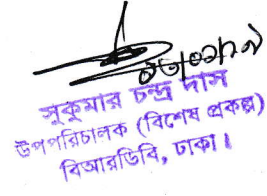 সুকুমার চন্দ্র দাস
উপপরিচালক (বিশেষ প্রকল্প)
বিআরডিবি, ঢাকা।